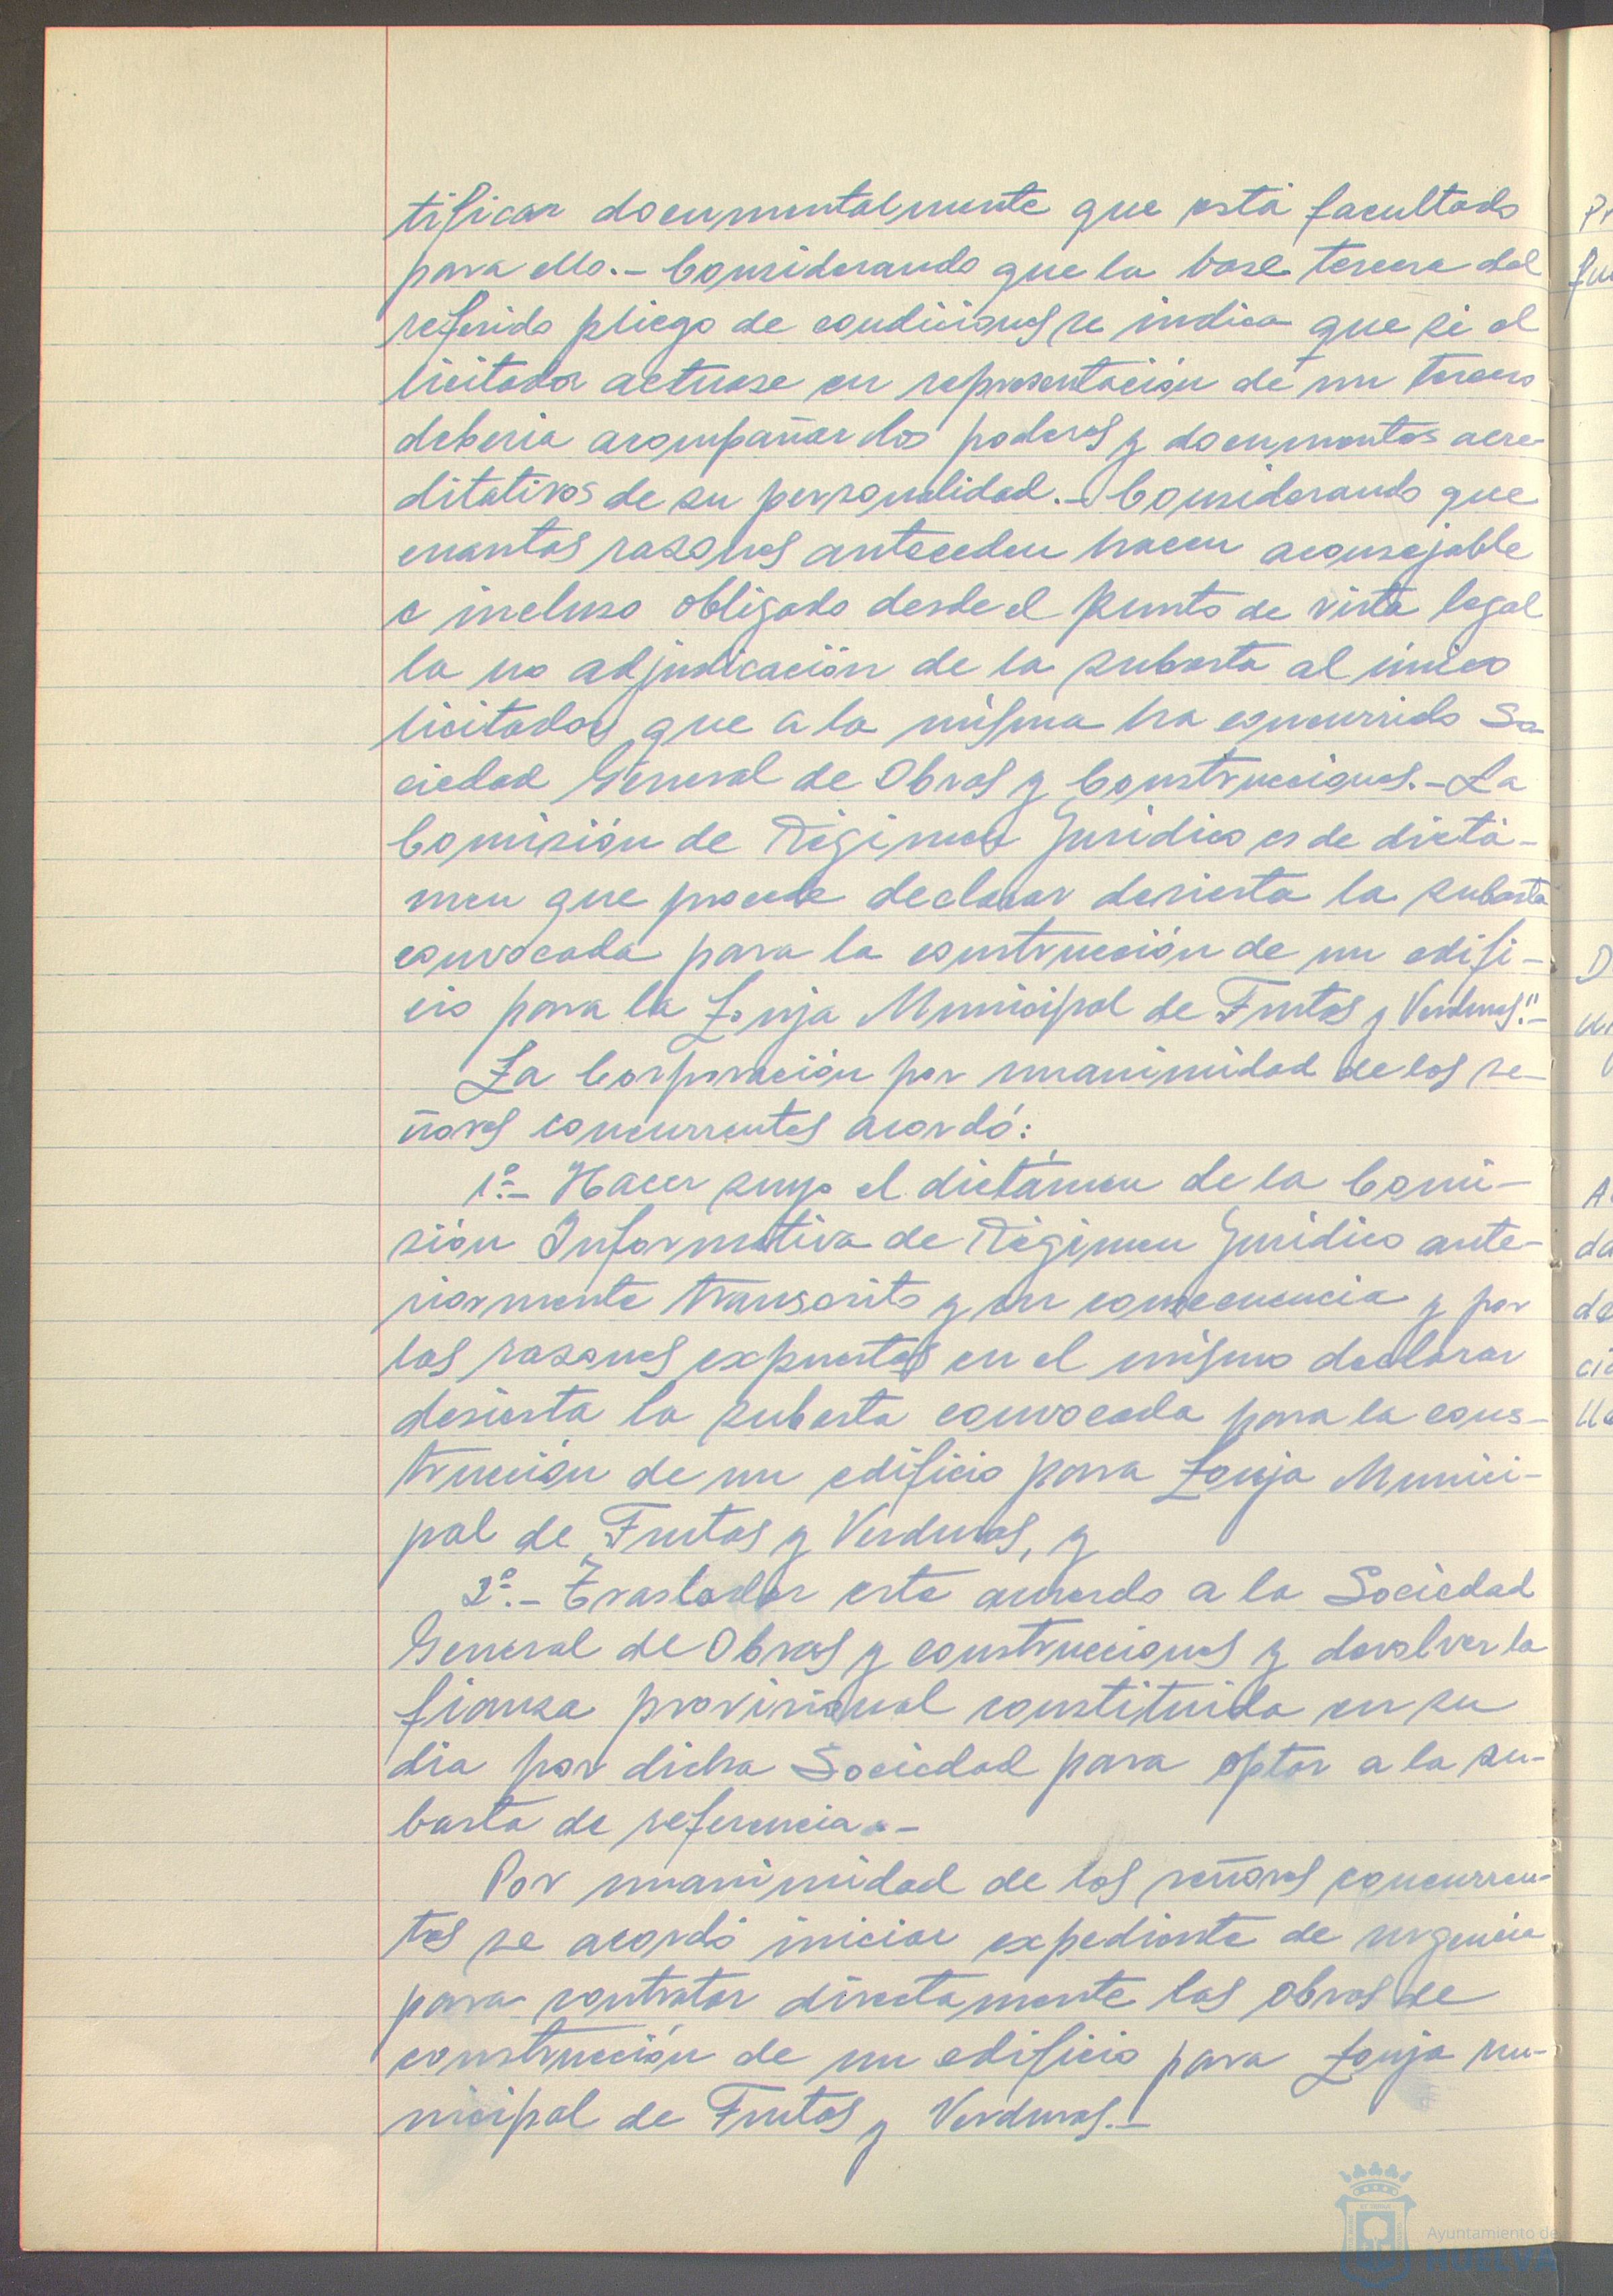 tificar documentalmente que está facultado
para ello.- Considerando que la base tercera del
referido pliego de condiciones se indica que si el
licitador actuase en representación de un tercero
deberia acompañar los poderes y documentos acre-
ditativos de su personalidad.- Considerando que
cuantas razones anteceden hacen aconsejable
e incluso obligado desde el punto de vista legal
la no adjudicación de la subasta al único
licitador que a la misma ha concurrido So-
ciedad General de Obras y Construcciones.- La
Comisión de Régimen Jurídico es de dictá-
men que procede declarar desierta la subasta
convocada para la construcción de un edifi-
cio para la Lonja Municipal de Frutas y Verduras".-
La Corporación por unanimidad de los se-
ñores concurrentes acordó:
1º.- Hacer suyo el dictámen de la Comi-
sión Informativa de Régimen Jurídico ante-
riormente transcrito y en consecuencia y por
las razones expuestas en el mismo declarar
desierta la subasta convocada para la cons-
trucción de un edificio para Lonja Munici-
pal de Frutas y Verduras, y
2º.- Trasladar este acuerdo a la Sociedad
General de Obras y construcciones y devolver la
fianza provisional constituida en su
dia por dicha Sociedad para optar a la su-
basta de referencia.-
Por unanimidad de los señores concurren-
tes se acordó iniciar expediente de urgencia
para contratar directamente las obras de
construcción de un edificio para Lonja mu-
nicipal de Frutas y Verduras.-
Ayuntamiento de
HUELVA